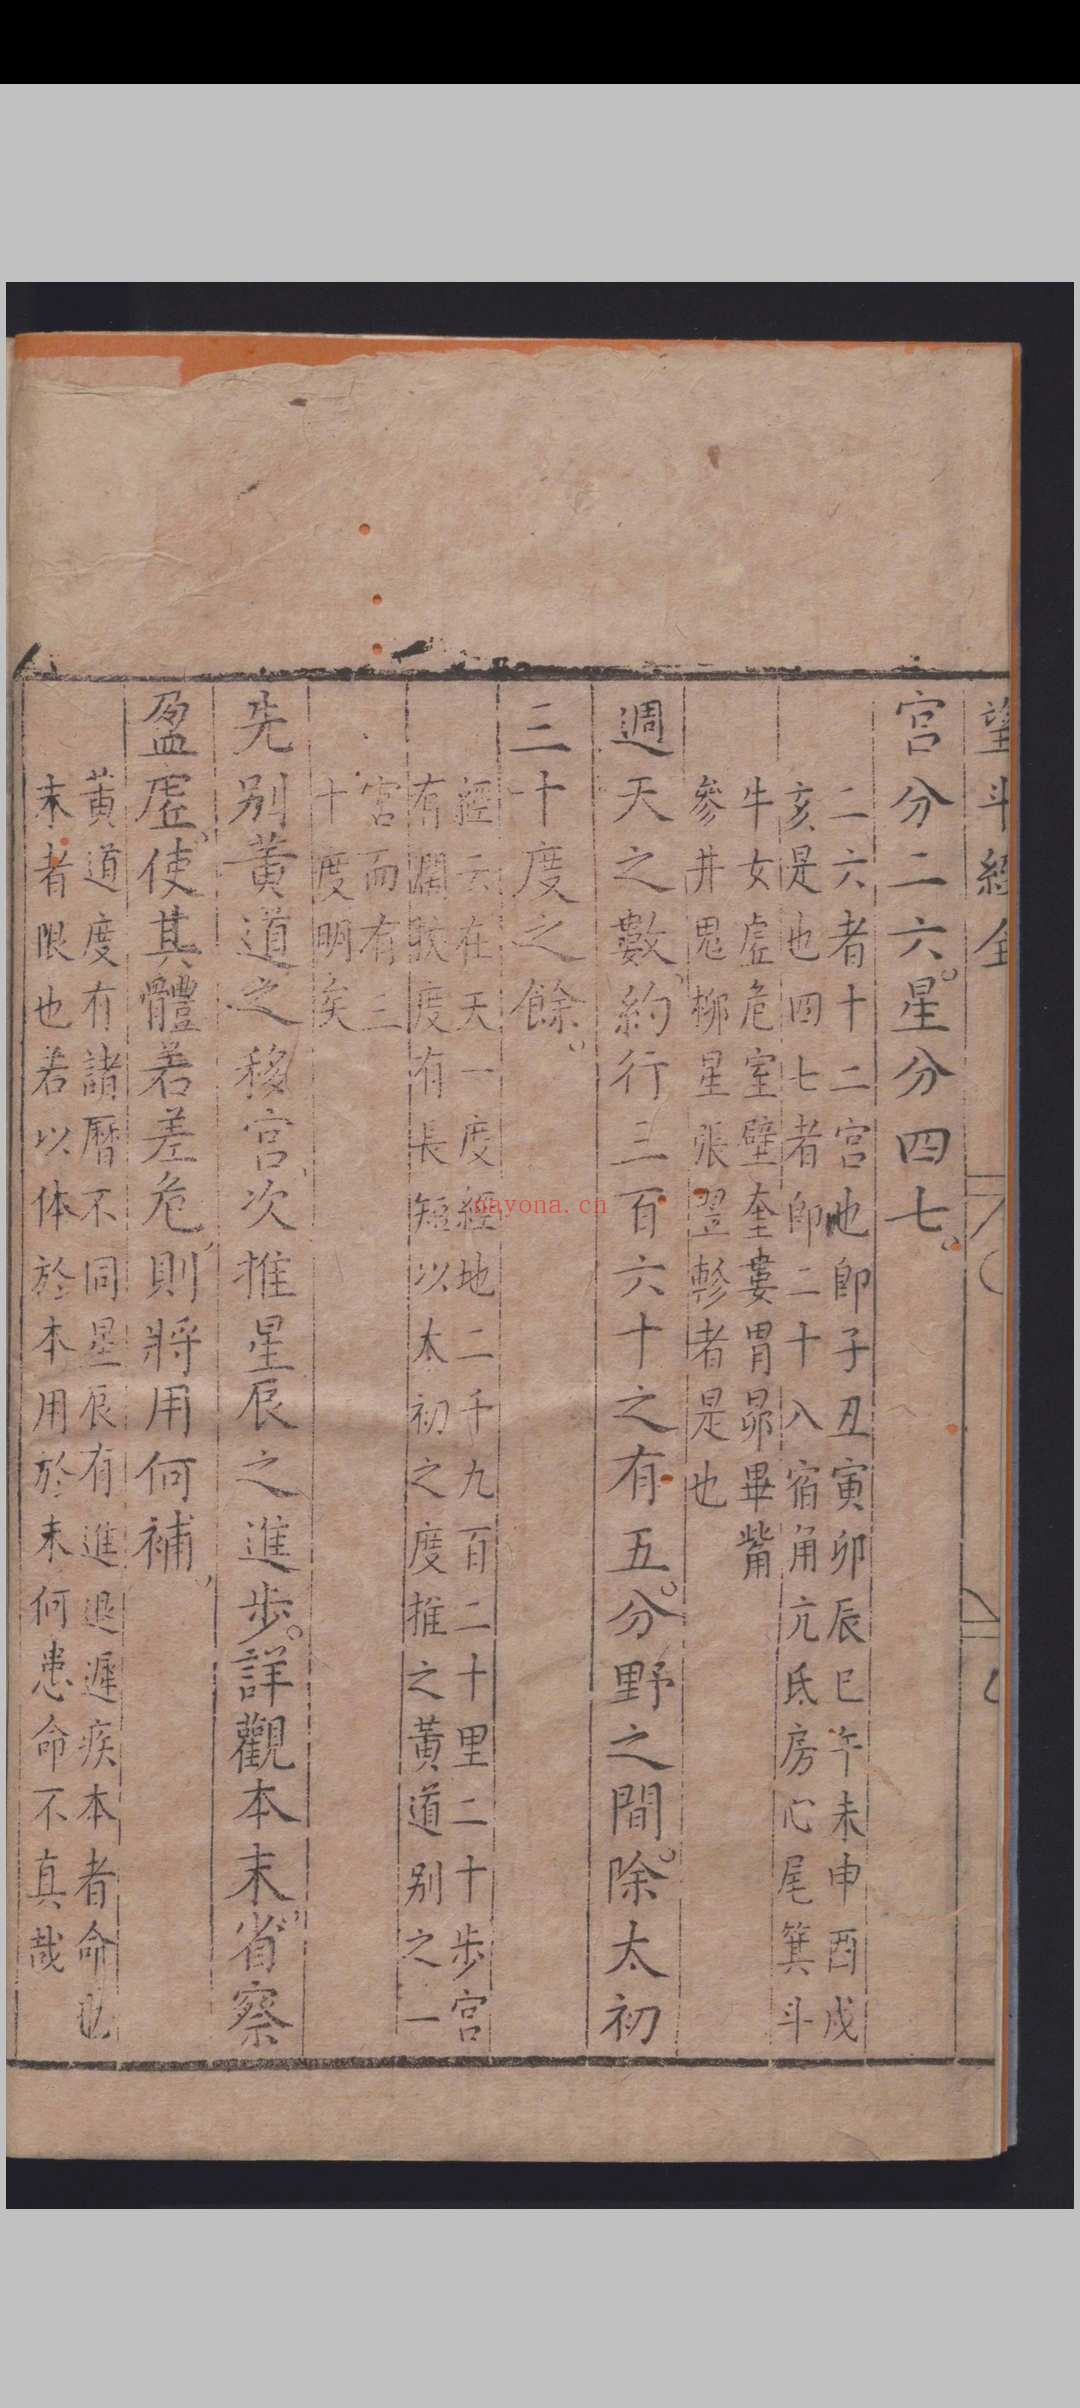 望斗經全
宮分二六星分四七
二六者十二宮也卽子丑寅卯辰巳午未申酉戌
亥是也四七者卽二十八宿角亢氐房心尾箕斗
牛女虛危室壁奎婁胃昴畢觜
參井鬼柳星張翌軫者是也
週天之數約行三百六十之有五分野之間除太初
三十度之餘
經云在天一度經地二千九百二十里二十步宮
有濶狹度有長短以太初之度推之黃道别之一
宮而有三
十度明矣
先别黃道之移宮次推星辰之進步詳觀本末省察
盈虛使其體若差危則將用何補
黃道度有諸曆不同星辰有進退遲疾本者命也
末者限也若以体於本用於末何患命不真哉
nayona.cn